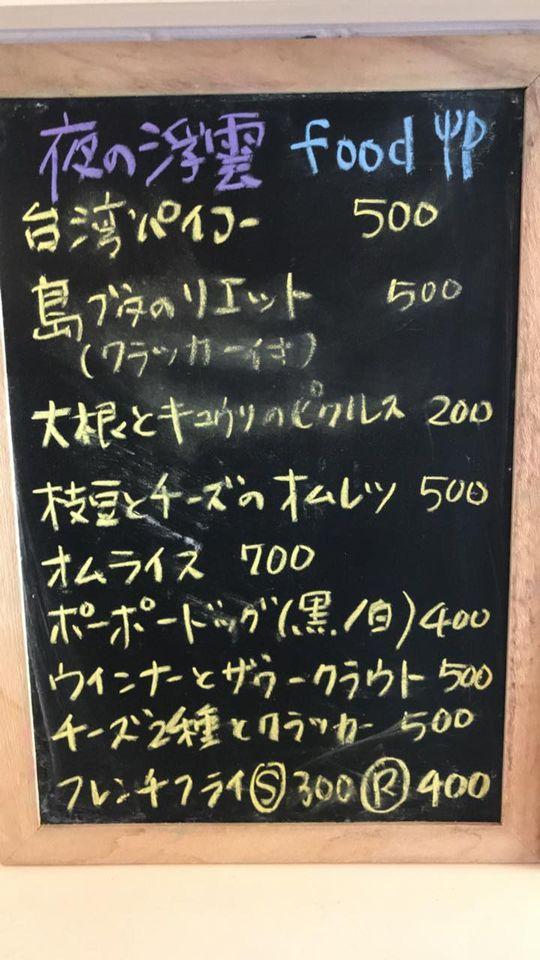 夜の浮雲 food
台湾パイコー 500
島ブタのリエット 500
(クラッカー付き)
大根とキュウリのピクルス 200
枝豆とチーズのオムレツ 500
オムライス 700
ポーポードッグ(黒/白) 400
ウインナーとザワークラウト 500
チーズ2種とクラッカー 500
フレンチフライ Ⓢ 300 Ⓡ 400